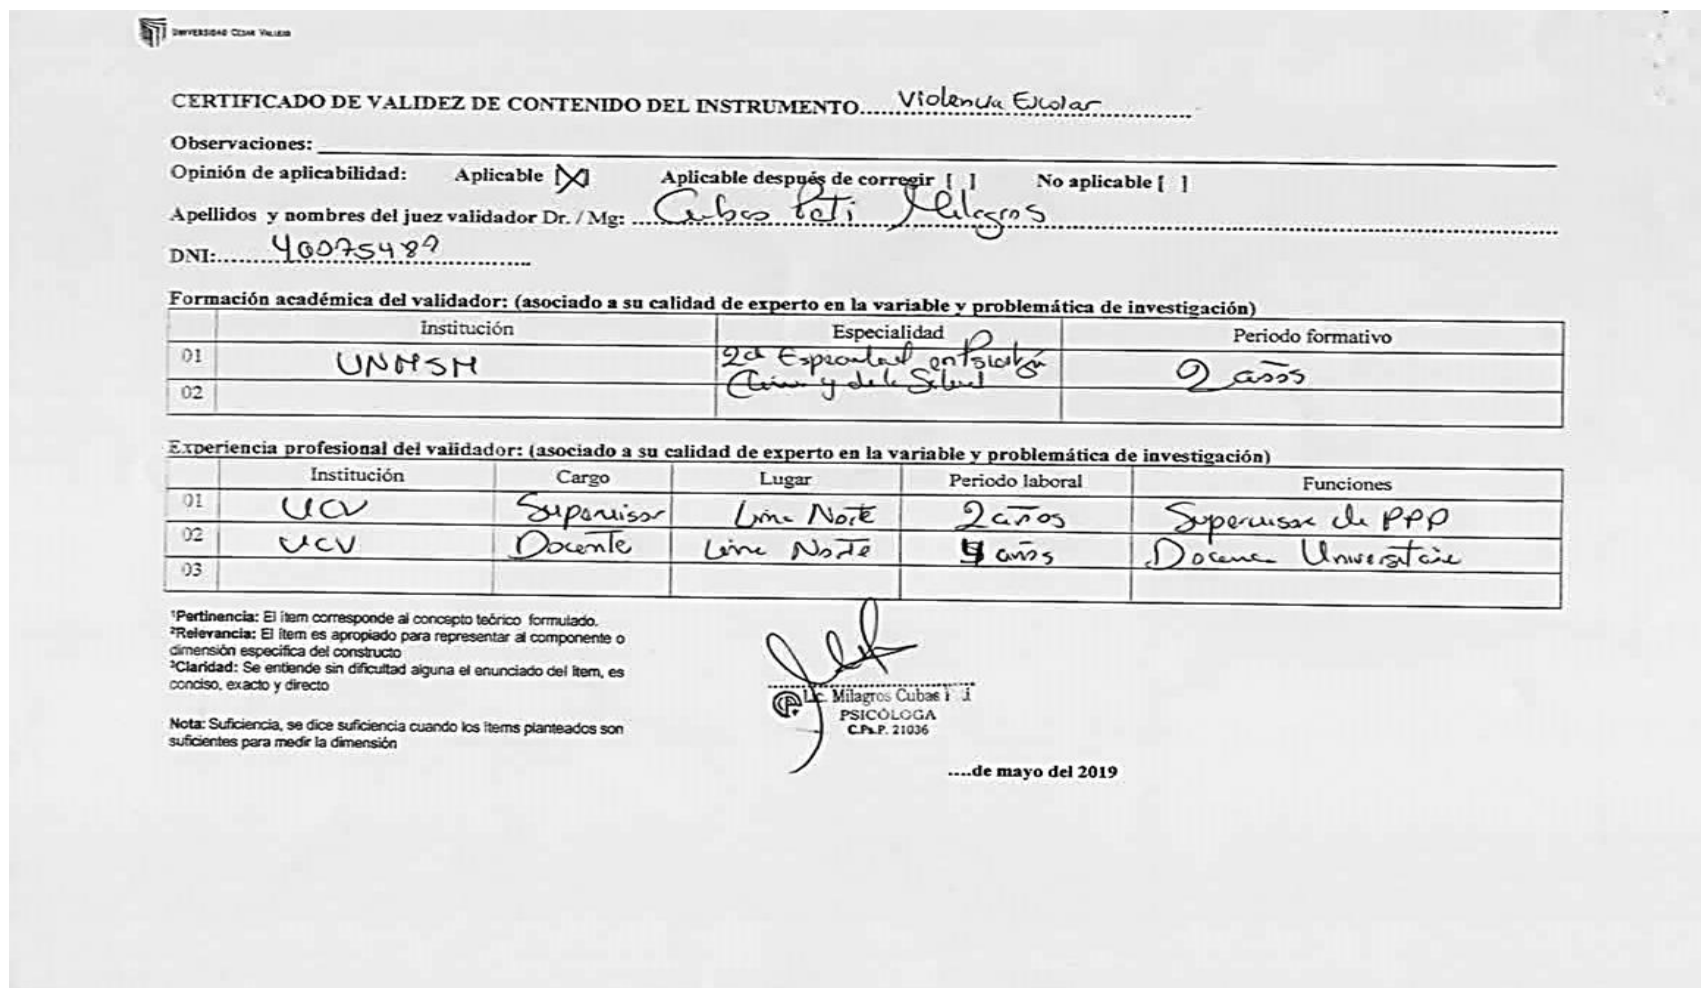 UNIVERSIDAD CESAR VALLEJO
CERTIFICADO DE VALIDEZ DE CONTENIDO DEL INSTRUMENTO.....Violencia Escolar.....
Observaciones:
Opinión de aplicabilidad: Aplicable [X] Aplicable después de corregir [ ] No aplicable [ ]
Apellidos y nombres del juez validador Dr. / Mg: ....Cubas Milagros....
DNI:........
Formación académica del validador: (asociado a su calidad de experto en la variable y problemática de investigación)
Institución Especialidad Periodo formativo
01 UNMSM 2da Especialidad en Psicología Clínica y de la Salud 2 años
02
Experiencia profesional del validador: (asociado a su calidad de experto en la variable y problemática de investigación)
Institución Cargo Lugar Periodo laboral Funciones
01 UCV Supervisor Lima Norte 2 años Supervisor de PPP
02 UCV Docente Lima Norte años Docencia Universitaria
03
¹Pertinencia: El ítem corresponde al concepto teórico formulado.
²Relevancia: El ítem es apropiado para representar al componente o
dimensión específica del constructo
³Claridad: Se entiende sin dificultad alguna el enunciado del ítem, es
conciso, exacto y directo
Nota: Suficiencia, se dice suficiencia cuando los ítems planteados son
suficientes para medir la dimensión
Lic. Milagros Cubas
PSICÓLOGA
C.Ps.P. 21036
....de mayo del 2019